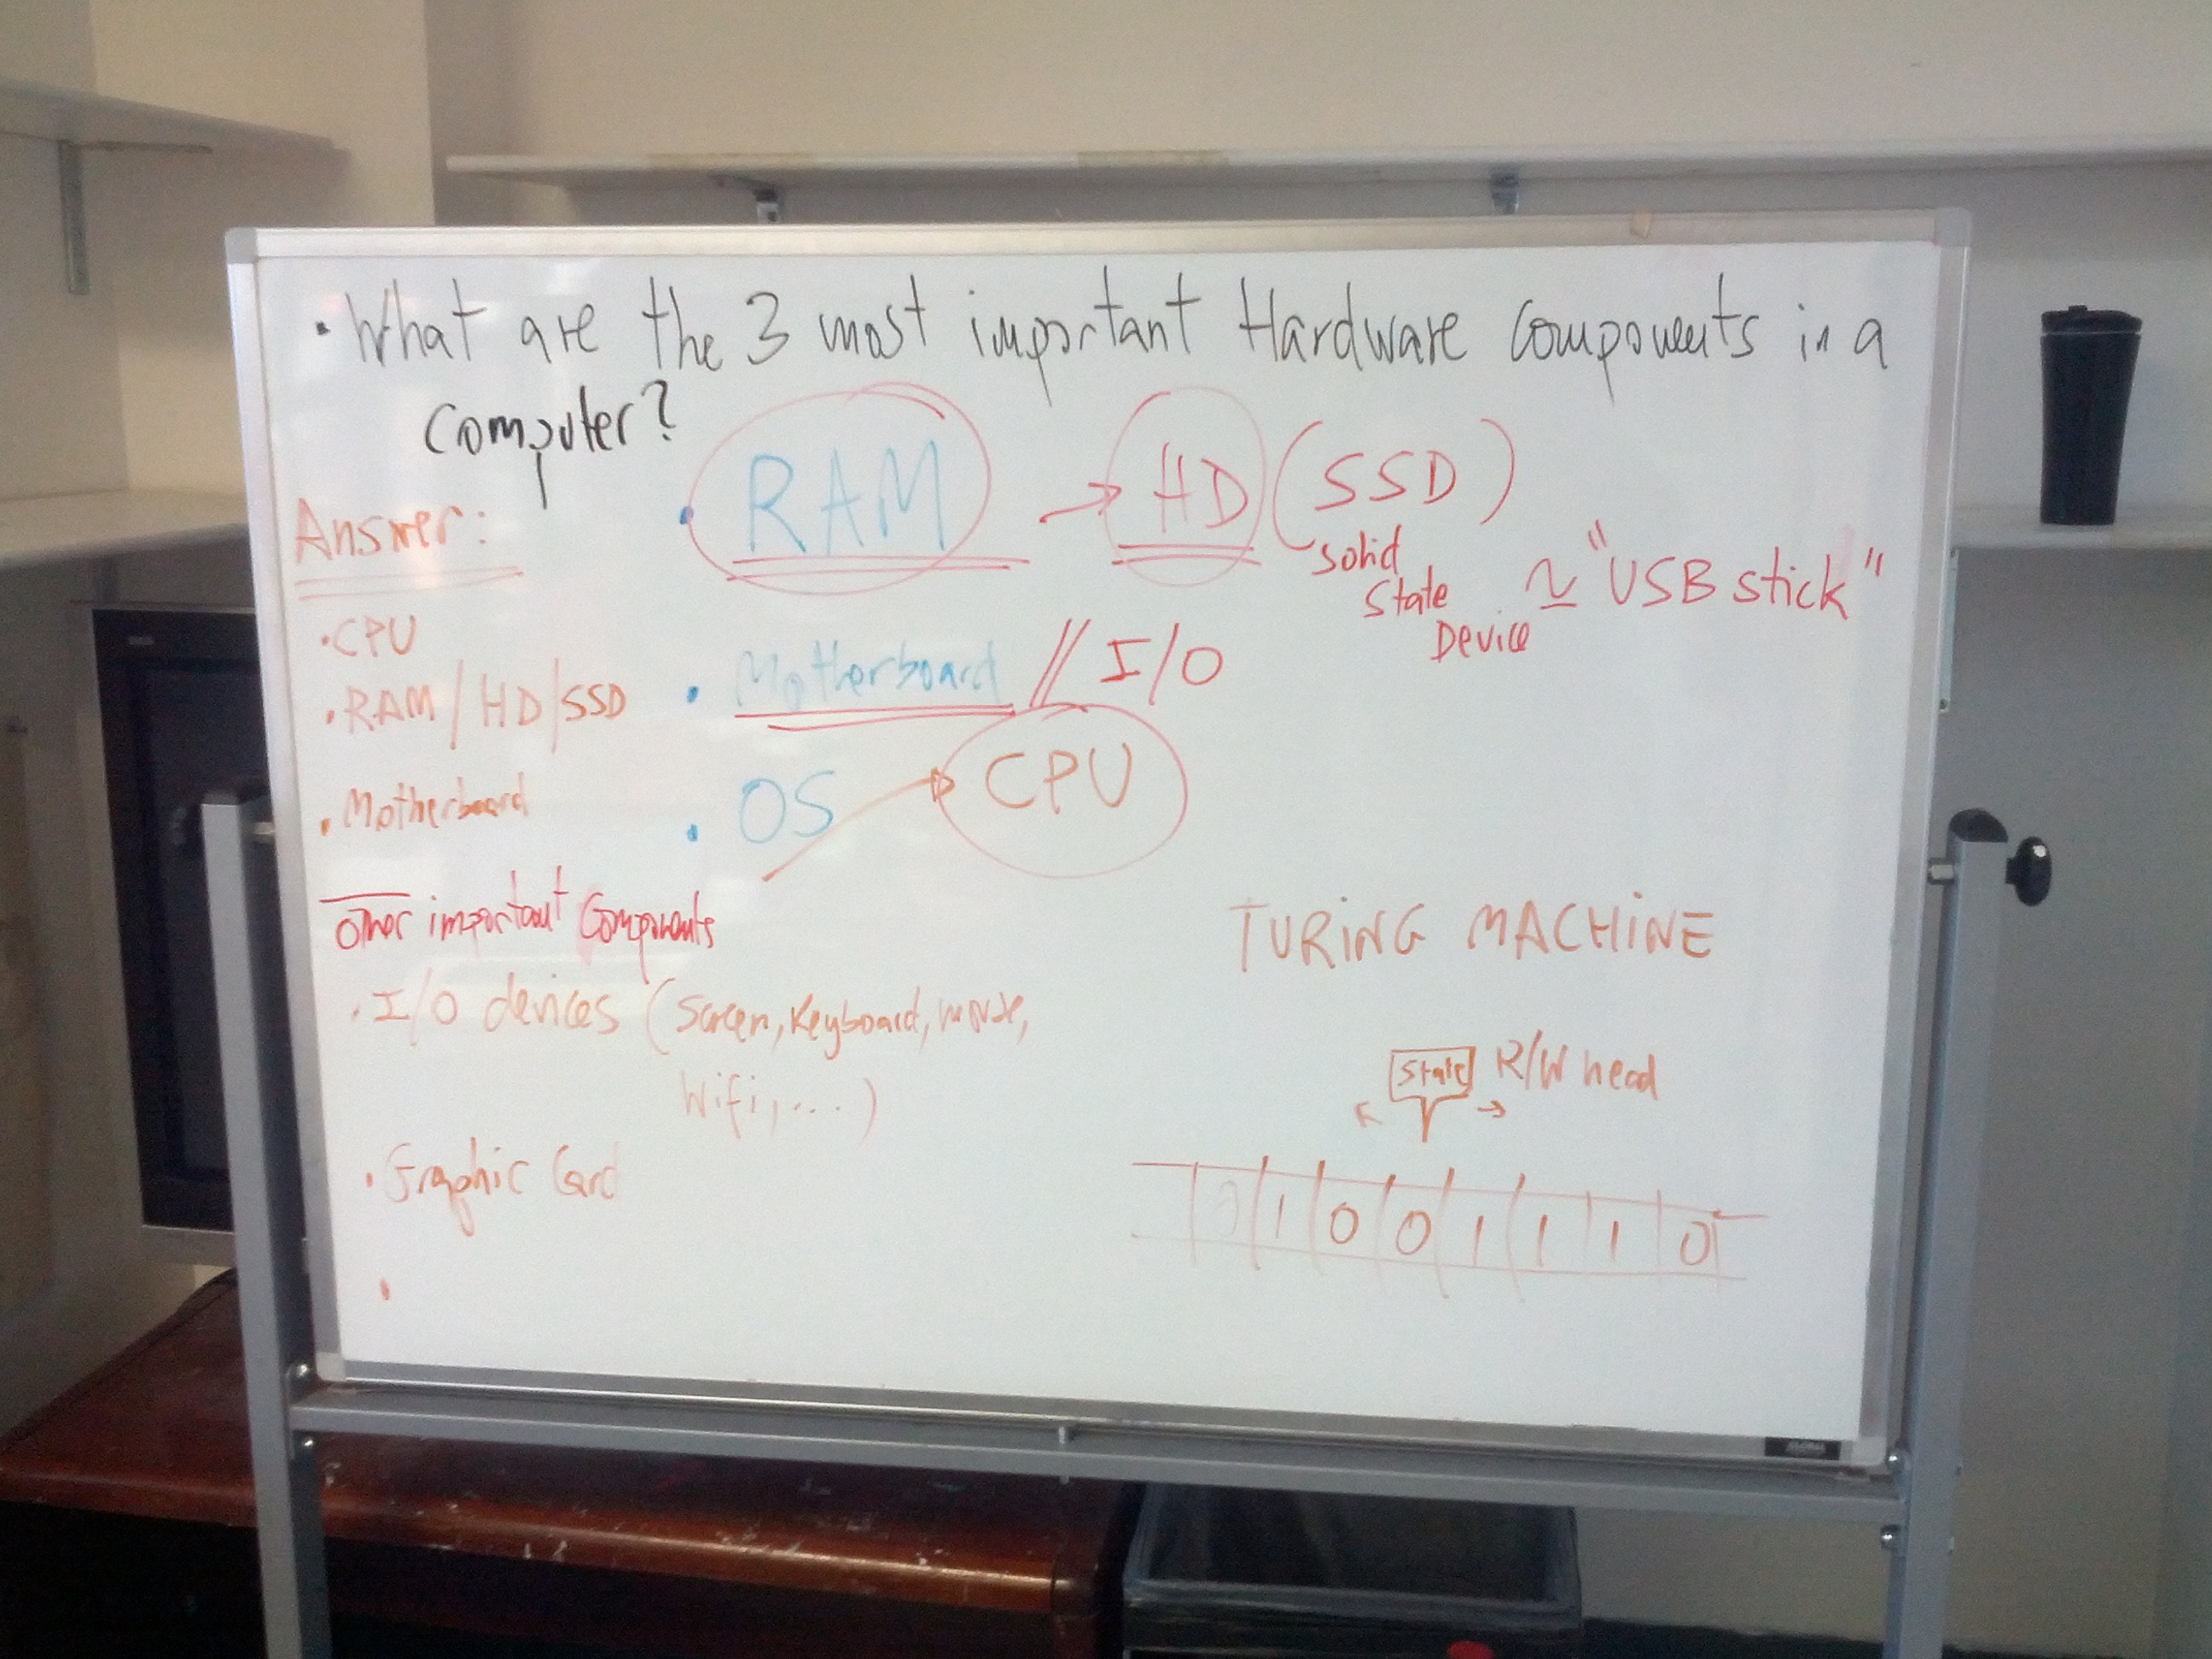 • What are the 3 most important Hardware components in a
computer?
Answer:
• CPU
• RAM / HD / SSD
• Motherboard
other important Components
• I/O devices (Screen, Keyboard, mouse,
Wifi, ....)
• Graphic Card
•
• RAM → HD (SSD)
Solid
State
Device ≃ "USB stick"
• Motherboard // I/O
• OS → CPU
TURiNG MACHiNE
State R/W head
0 1 0 0 1 1 1 0